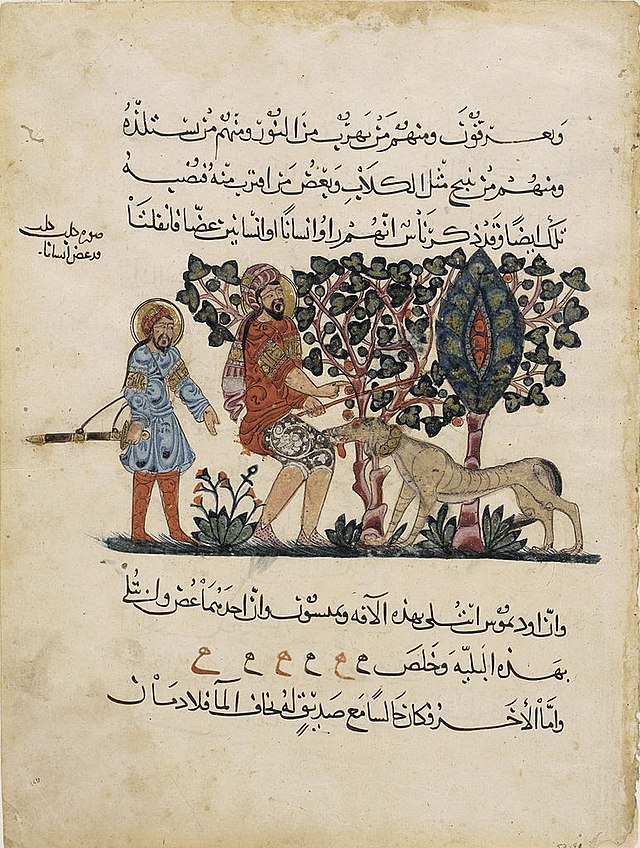 ويعرقون ومنهم من يهرب من النور ومنهم من يستلذه
ومنهم من ينبح مثل الكلاب ويعض من اقترب منه فتصيبه
تلك ايضا وقد ذكر ناس انهم راوا انسانا او انسانين عضا فانفلتا
صورة كلب كلب
قد عض انسانا
وان اوديموس ابتلى بهذه الافه وان احدهما عض وابتلى
بهذه البليه وخلص ه ه ه ه ه ه
واما الاخر فكان جالسا مع صديق له يخاف الما فلازمان